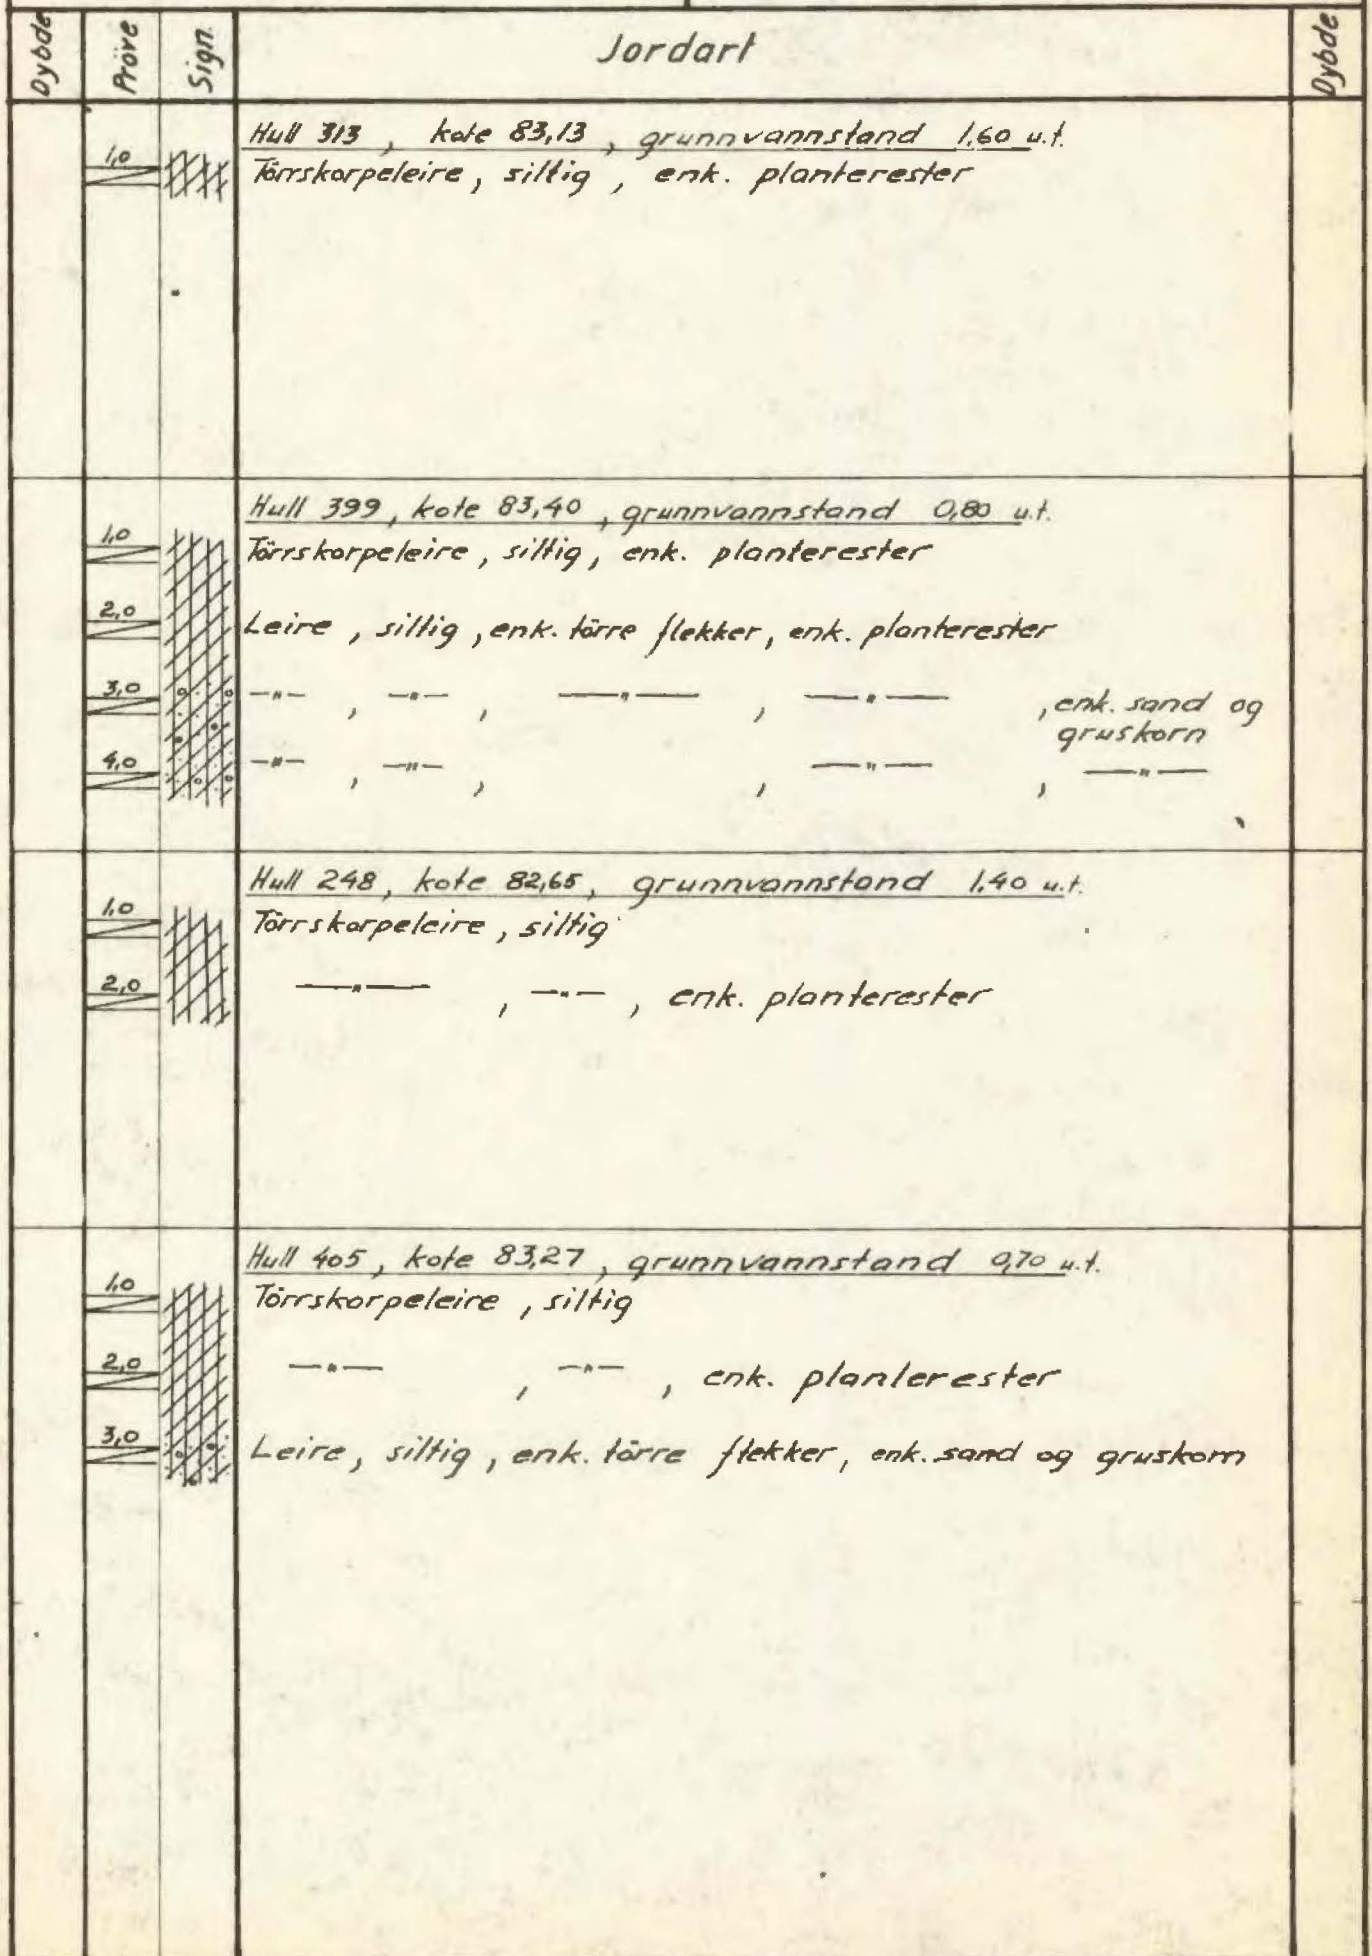 Dybde Pröve Sign. Jordart Dybde
Hull 313, kote 83,13, grunnvannstand 1,60 u.t.
1,0 Törrskorpeleire, siltig, enk. planterester
Hull 399, kote 83,40, grunnvannstand 0,80 u.t.
1,0 Törrskorpeleire, siltig, enk. planterester
2,0 Leire, siltig, enk. törre flekker, enk. planterester
3,0 —"—, —"—, —"—, —"—, enk. sand og
gruskorn
4,0 —"—, —"—, , —"—, —"—
Hull 248, kote 82,65, grunnvannstand 1,40 u.t.
1,0 Törrskorpeleire, siltig
2,0 —"—, —"—, enk. planterester
Hull 405, kote 83,27, grunnvannstand 0,70 u.t.
1,0 Törrskorpeleire, siltig
2,0 —"—, —"—, enk. planterester
3,0 Leire, siltig, enk. törre flekker, enk. sand og gruskorn